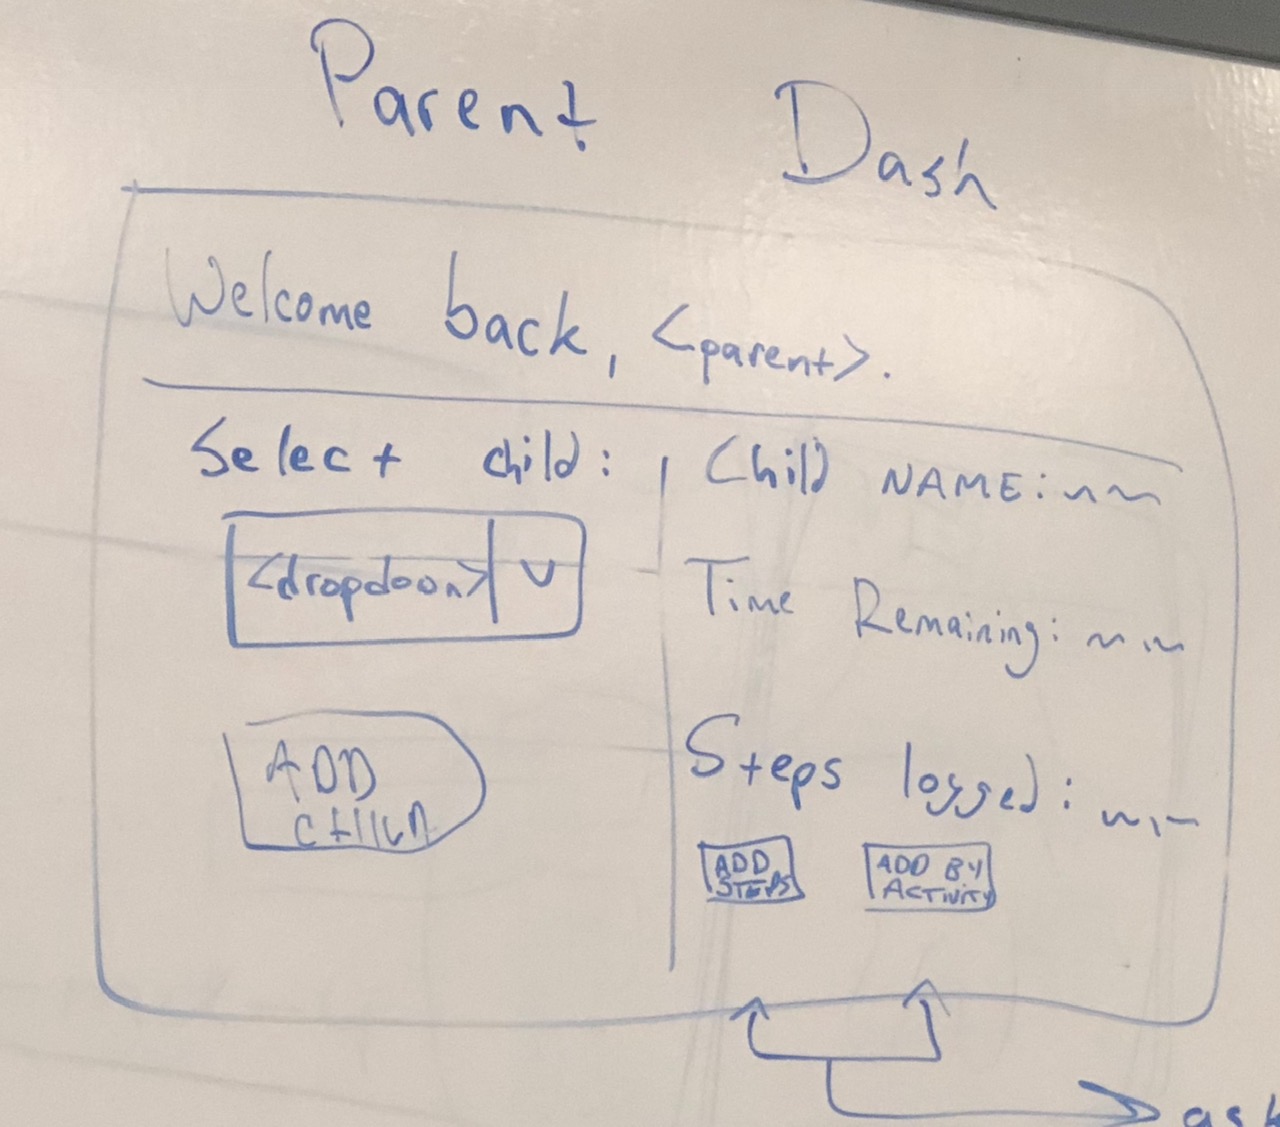 Parent Dash
Welcome back, <parent>.
Select child:
<dropdown> v
ADD
CHILD
Child NAME: ~~
Time Remaining: ~~
Steps logged: ~~
ADD
STEPS
ADD BY
ACTIVITY